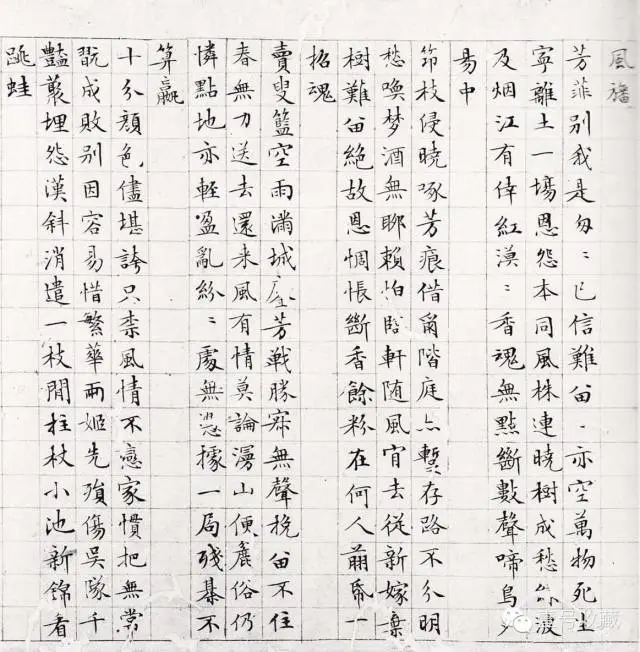 風旛
芳菲別我是匆〻已信難留〻亦空萬物死生
寧離土一場恩怨本同風株連曉樹成愁綠波
及烟江有倖紅漠〻香魂無點斷數聲啼鳥夕
昜中
筇枝侵曉啄芳痕借爾階庭亦暫存路不分明
愁喚梦酒無聊賴怕臨軒随風宵去從新嫁棄
樹難留絕故恩惆悵斷香餘粉在何人翦紙一
招魂
賣叟籃空雨滿城芳戰勝寂無聲挽留不住
春無力送去還来風有情莫論漫山便麁俗仍
憐點地亦輕盈亂紛〻處無憑據一局殘棊不
算贏
十分顏色儘堪誇只柰風情不戀家慣把無常
翫成敗別因容易惜繁華兩姬先殞傷吳隊千
豔叢埋怨漢斜消遣一枝閒拄杖小池新錦看
跳蛙
壹号收藏